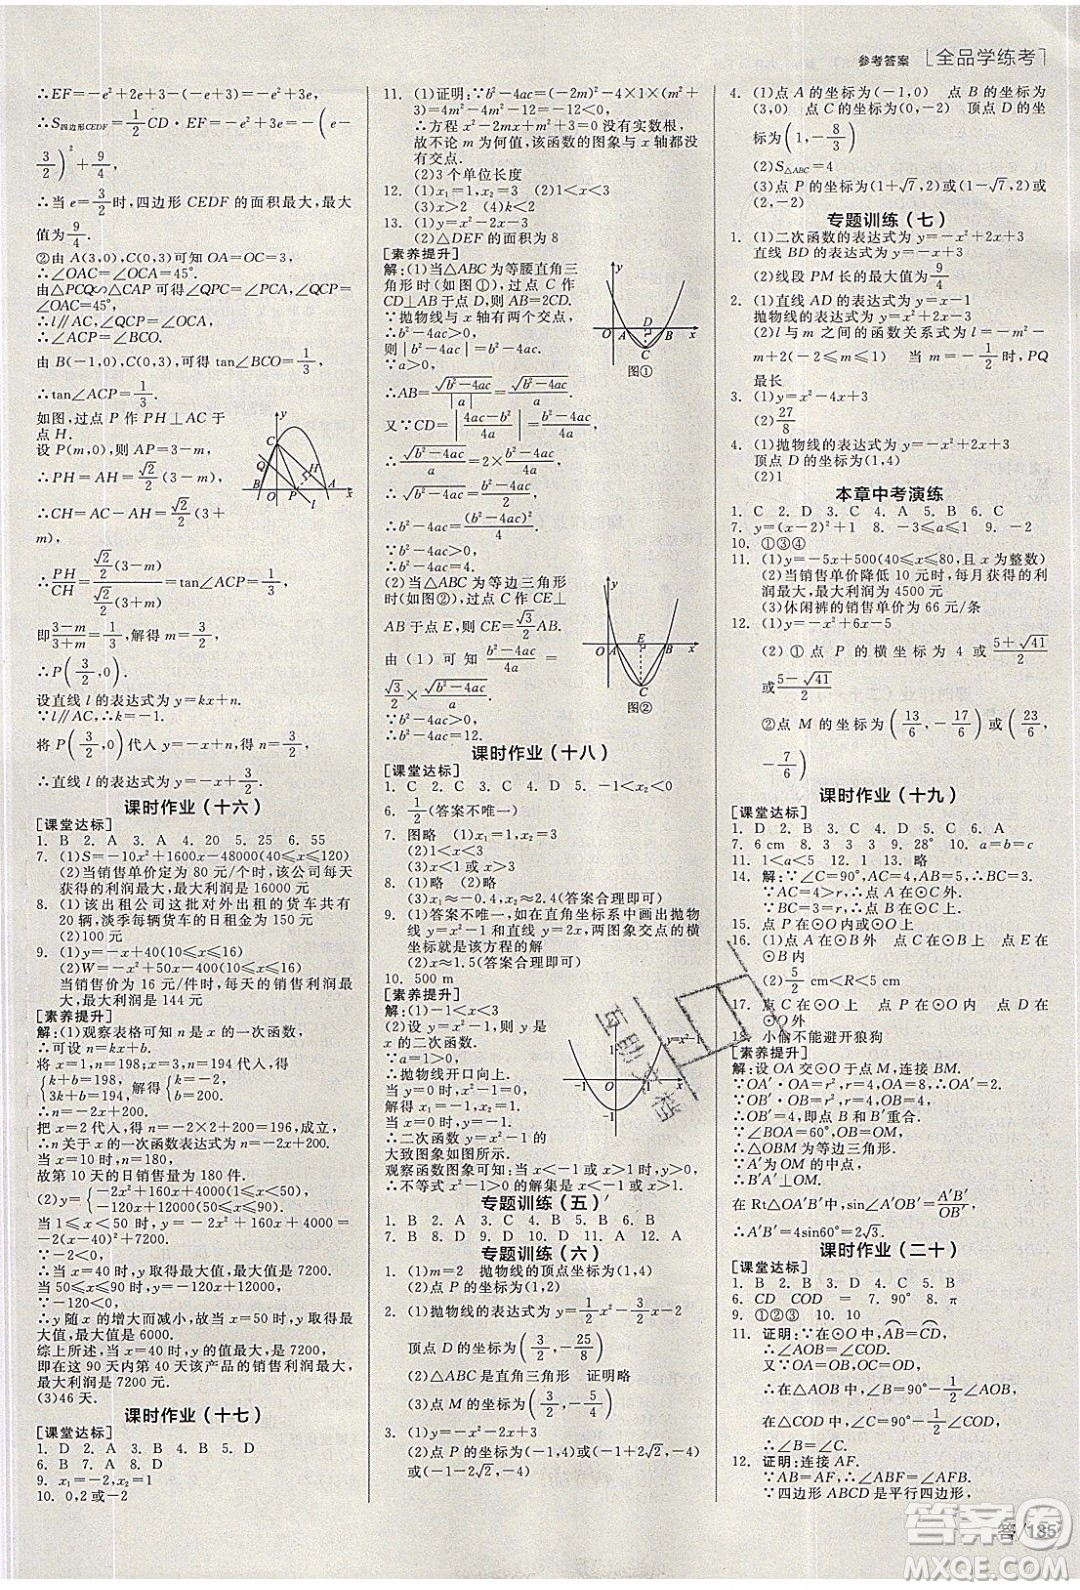 参考答案 [全品学练考]
∴EF=-e²+2e+3-(-e+3)=-e²+3e,
∴S四边形CEDF=1/2CD·EF=-e²+3e=-(e-
3/2)²+9/4,
∴当e=3/2时,四边形CEDF的面积最大,最大
值为9/4.
②由A(3,0),C(0,3)可知OA=OC=3,
∴∠OAC=∠OCA=45°.
由△PCQ∽△CAP可得∠QPC=∠PCA,∠QCP=
∠OAC=45°,
∴l∥AC,∠QCP=∠OCA,
∴∠ACP=∠BCO.
由B(-1,0),C(0,3),可得tan∠BCO=1/3,
∴tan∠ACP=1/3.
如图,过点P作PH⊥AC于
点H.
设P(m,0),则AP=3-m,
∴PH=AH=√2/2(3-m),
∴CH=AC-AH=√2/2(3+
m),
∴PH/CH=√2/2(3-m)/√2/2(3+m)=tan∠ACP=1/3,
即3-m/3+m=1/3,解得m=3/2,
∴P(3/2,0).
设直线l的表达式为y=kx+n.
∵l∥AC,∴k=-1.
将P(3/2,0)代入y=-x+n,得n=3/2,
∴直线l的表达式为y=-x+3/2.
课时作业(十六)
[课堂达标]
1. B 2. A 3. A 4. 20 5. 25 6. 55
7. (1)S=-10x²+1600x-48000(40≤x≤120)
(2)当销售单价定为80元/个时,该公司每天
获得的利润最大,最大利润是16000元
8. (1)该出租公司这批对外出租的货车共有
20辆,淡季每辆货车的日租金为150元
(2)100元
9. (1)y=-x+40(10≤x≤16)
(2)W=-x²+50x-400(10≤x≤16)
当销售价为16元/件时,每天的销售利润最
大,最大利润是144元
[素养提升]
解:(1)观察表格可知n是x的一次函数,
∴可设n=kx+b.
将x=1,n=198,x=3,n=194代入,得
{k+b=198, 3k+b=194, 解得{k=-2, b=200,
∴n=-2x+200.
把x=2代入,得n=-2×2+200=196,成立,
∴n关于x的一次函数表达式为n=-2x+200.
当x=10时,n=180.
故第10天的日销售量为180件.
(2)y={-2x²+160x+4000(1≤x<50), -120x+12000(50≤x≤90).
当1≤x<50时,y=-2x²+160x+4000=
-2(x-40)²+7200.
∵-2<0,
∴当x=40时,y取得最大值,最大值是7200.
当50≤x≤90时,y=-120x+12000.
∵-120<0,
∴y随x的增大而减小,即当x=50时,y取得最
大值,最大值是6000.
综上所述,当x=40时,y取得最大值7200,
即在这90天内第40天该产品的销售利润最大,
最大利润是7200元.
(3)46天.
课时作业(十七)
[课堂达标]
1. D 2. D 3. A 4. D 5. D
6. B 7. A 8. D
9. x₁=-1,x₂=3
10. 0,2或-2
11. (1)证明:∵b²-4ac=(-2m)²-4(m²+
3)=4m²-4m²-12=-12<0,
∴方程x²-2mx+m²+3=0没有实数根,
故不论m为何值,该函数的图象与x轴都没
有交点.
(2)3个单位长度
12. (1)x₁=1,x₂=3 (2)1<x<3
(3)x>2 (4)k<2
13. (1)y=x²-2x-3
(2)△DEF的面积为8
[素养提升]
解:(1)当△ABC为等腰直角三
角形时(如图①),过点C作
CD⊥AB于点D,则AB=2CD.
∵抛物线与x轴有两个交点,
∴b²-4ac>0,
则|b²-4ac|=b²-4ac.
∵a>0,
∴AB=√b²-4ac/|a|=√b²-4ac/a.
又∵CD=|4ac-b²/4a|=b²-4ac/4a,
∴√b²-4ac/a=2×b²-4ac/4a,
∴√b²-4ac=b²-4ac/2,
∴b²-4ac=(b²-4ac)²/4.
∵b²-4ac>0,
∴b²-4ac=4.
(2)当△ABC为等边三角形
时(如图②),过点C作CE⊥
AB于点E,则CE=√3/2AB.
由(1)可知b²-4ac/4a=
√3/2×√b²-4ac/a.
∵b²-4ac>0,
∴b²-4ac=12.
图①
图②
课时作业(十八)
[课堂达标]
1. C 2. C 3. C 4. D 5. -1<x₂<0
6. 1/2(答案不唯一)
7. 图略 (1)x₁=1,x₂=3
(2)1<x<3
(3)x<1或x>3
8. (1)略 (2)x₁=-1,x₂=4
(3)x≈-0.4或x≈3.4(答案合理即可)
9. (1)答案不唯一,如在直角坐标系中画出抛物
线y=x²-1和直线y=x,两图象交点的横
坐标就是该方程的解
(2)x≈1.5(答案合理即可)
10. 500 m
[素养提升]
解:(1)-1<x<3
(2)设y=x²-1,则y是
x的二次函数.
∵a=1>0,
∴抛物线开口向上.
当y=0时,x²-1=0,
解得x₁=1,x₂=-1.
当x=0时,y=-1.
∴二次函数y=x²-1的
大致图象如图所示.
观察函数图象可知:当x<-1或x>1时,y>0.
∴不等式x²-1>0的解集是x<-1或x>1.
专题训练(五)
1. B 2. A 3. C 4. D 5. D 6. B
7. B 8. A 9. D 10. A 11. D
专题训练(六)
1. (1)m=2 抛物线的顶点坐标为(1,4)
(2)点P的坐标为(1,2)
2. (1)抛物线的表达式为y=1/2x²-3/2x-2
顶点D的坐标为(3/2,-25/8)
(2)△ABC是直角三角形 证明略
(3)点M的坐标为(3/2,-5/4)
3. (1)y=-x²-2x+3
(2)点P的坐标为(-1,4)或(-1+2√2,-4)
或(-1-2√2,-4)
4. (1)点A的坐标为(-1,0) 点B的坐标为
(3,0) 点C的坐标为(0,-2) 顶点D的坐
标为(1,-8/3)
(2)S△ABC=4
(3)点P的坐标为(1+√7,2)或(1-√7,2)或
(2,-2)
专题训练(七)
1. (1)二次函数的表达式为y=-x²+2x+3
直线BD的表达式为y=-x+3
(2)线段PM长的最大值为9/4
2. (1)直线AD的表达式为y=x-1
抛物线的表达式为y=x²+2x-3
(2)l与m之间的函数关系式为l=-m²-
m+2(-2<m<1) 当m=-1/2时,PQ
最长
3. (1)y=x²-4x+3
(2)27/8
4. (1)抛物线的表达式为y=-x²+2x+3
顶点D的坐标为(1,4)
(2)1
本章中考演练
1. C 2. D 3. C 4. A 5. B 6. C
7. y=(x-2)²+1 8. -3≤a≤1 9. -2
10. ①③④
11. (1)y=-5x+500(40≤x≤80,且x为整数)
(2)当销售单价降低10元时,每月获得的利
润最大,最大利润为4500元
(3)休闲裤的销售单价为66元/条
12. (1)y=-x²+6x-5
(2)①点P的横坐标为4或5+√41/2
或5-√41/2
②点M的坐标为(13/6,-17/6)或(23/6,
-7/6)
课时作业(十九)
[课堂达标]
1. D 2. B 3. C 4. A 5. C 6. B
7. 6 cm 8. 3 9. 28° 10. a=b=c
11. 1<a<5 12. 13 13. 略
14. 解:∵∠C=90°,AC=4,AB=5,∴BC=3.
∵AC=4>r,∴点A在⊙C外.
∵BC=3=r,∴点B在⊙C上.
15. 点O在点M的⊙O上
16. (1)点A在⊙B外 点C在⊙B内 点M
在⊙B上
(2)5/2 cm<R<5 cm
17. 点C在⊙O外 点P在⊙O内
18. 小偷不能避开狼狗
[素养提升]
解:设OA交⊙O于点M,连接BM.
∵OA′·OA=r²=16,OA=8,
∴OA′=2.同理可知,OB′=4,
∵⊙O的半径为4,即点B和B′重合.
∵∠BOA=60°,OM=OB,
∴△OBM为等边三角形.
∵A′为OM的中点,
∴B′A′⊥OM.
在Rt△OA′B′中,sin∠A′OB′=A′B′/OB′,
∴A′B′=4sin60°=2√3.
课时作业(二十)
[课堂达标]
1. B 2. B 3. D 4. C 5. A
6. CD COD = = 7. 90° 8. π
9. ①②③ 10. 10
11. 证明:∵在⊙O中,AB=CD,
∴∠AOB=∠COD.
又∵OA=OB,OC=OD,
∴在△AOB中,∠B=90°-1/2∠AOB,
在△COD中,∠C=90°-1/2∠COD,
∴∠B=∠C.
12. 证明:连接AF.
∵AB=AF,∴∠ABF=∠AFB.
∵四边形ABCD是平行四边形,
答/185
答案圈
MXQE.COM
互助文档